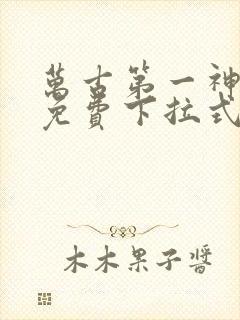 萬古第一神
免費下拉式
木木果子醬